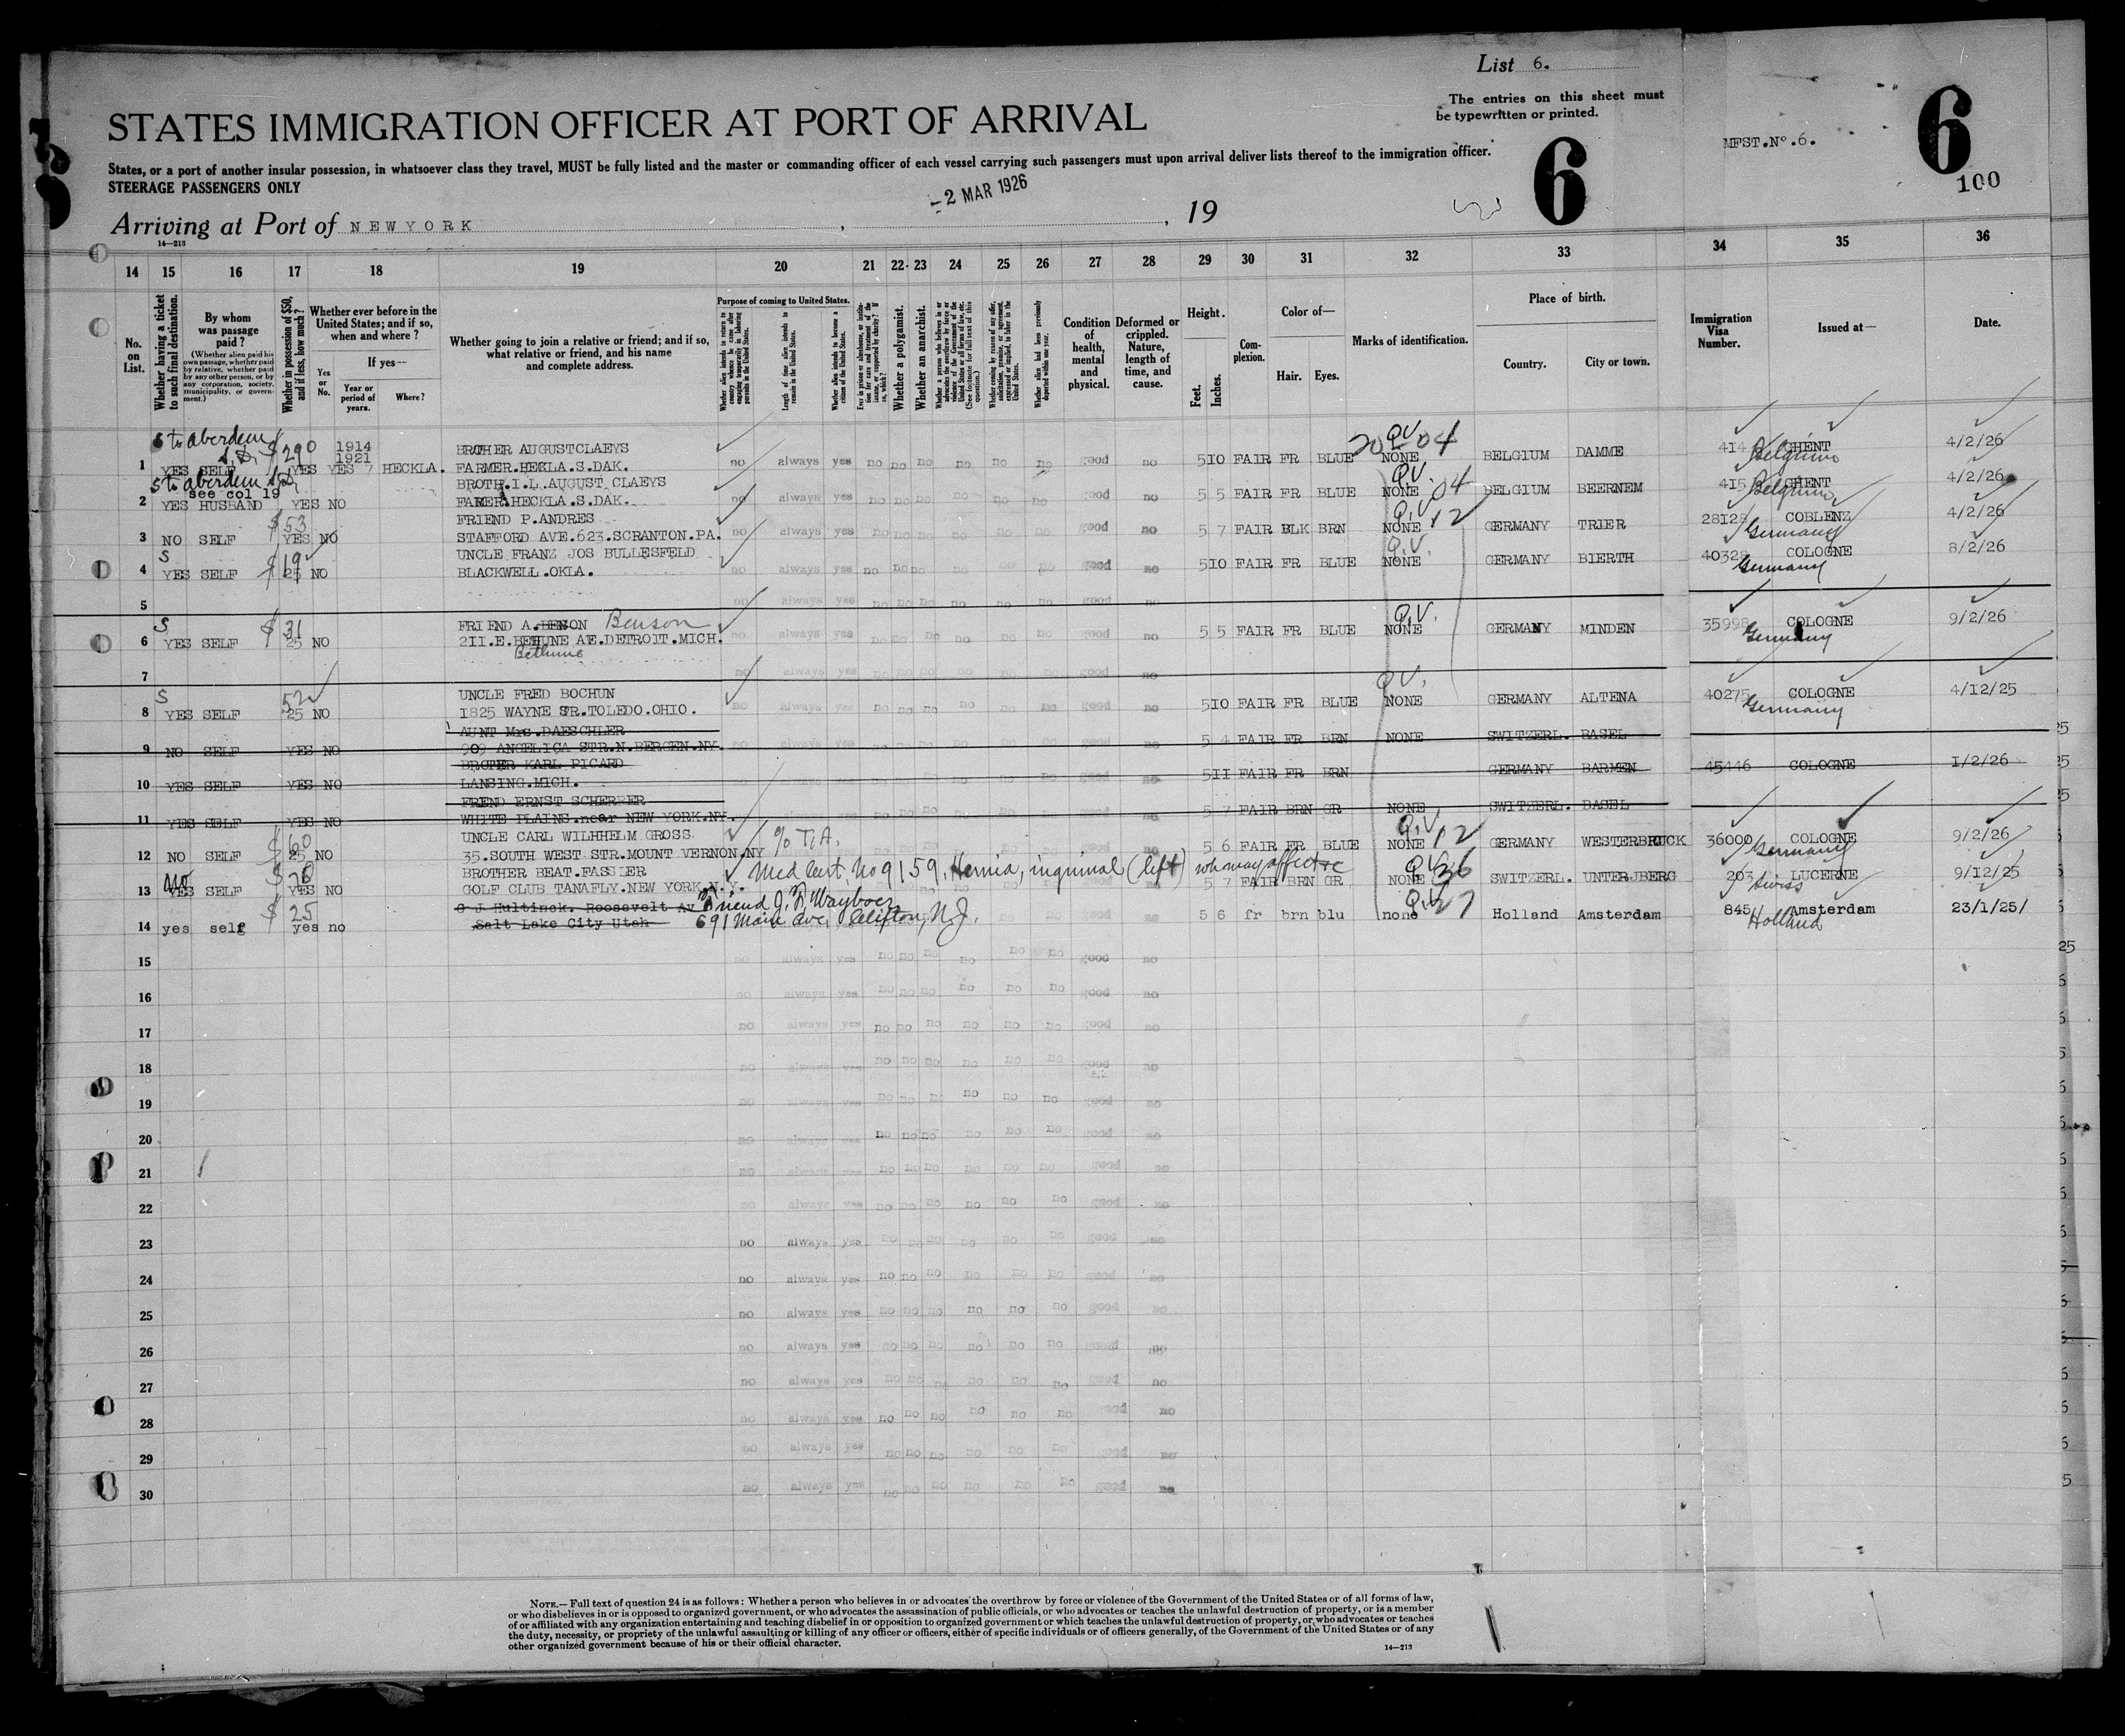 List 6.
The entries on this sheet must
be typewritten or printed.
STATES IMMIGRATION OFFICER AT PORT OF ARRIVAL
States, or a port of another insular possession, in whatsoever class they travel, MUST be fully listed and the master or commanding officer of each vessel carrying such passengers must upon arrival deliver lists thereof to the immigration officer.
STEERAGE PASSENGERS ONLY
6
MFST.No.6.
6
100
-2 MAR 1926
Arriving at Port of NEWYORK , 19
14—213
14 15 16 17 18 19 20 21 22 23 24 25 26 27 28 29 30 31 32 33 34 35 36
No. on List.
Whether having a ticket to such final destination.
By whom was passage paid?
(Whether alien paid his own passage, whether paid by relative, whether paid by any other person, or by any corporation, society, municipality, or government.)
Whether in possession of $50, and if less, how much?
Whether ever before in the United States; and if so, when and where?
If yes—
Yes or No.
Year or period of years.
Where?
Whether going to join a relative or friend; and if so, what relative or friend, and his name and complete address.
Purpose of coming to United States.
Length of time alien intends to remain in the United States.
Whether alien intends to become a citizen of the United States.
Whether a polygamist.
Whether an anarchist.
Condition of health, mental and physical.
Deformed or crippled. Nature, length of time, and cause.
Height.
Feet.
Inches.
Complexion.
Color of—
Hair.
Eyes.
Marks of identification.
Place of birth.
Country.
City or town.
Immigration Visa Number.
Issued at—
Date.
s to aberdeen S.D. $290 1914 BROTHER AUGUSTCLAEYS 20 Q.V. 04
1921
1 YES SELF YES YES HECKLA. FARMER.HECLA.S.DAK. no always yes no no no no no no good no 5 10 FAIR FR BLUE NONE BELGIUM DAMME 414 GHENT 4/2/26
Belgium
s to aberdeen
see col 19 BROTH.I.L.AUGUST CLAEYS Q.V. 04
2 YES HUSBAND YES NO FARMER.HECKLA.S.DAK. no always yes no no no no no no good no 5 5 FAIR FR BLUE NONE BELGIUM BEERNEM 415 GHENT 4/2/26
Belgium
$53 FRIEND P.ANDRES Q.V. 12
3 NO SELF YES NO STAFFORD AVE.623.SCRANTON.PA. no always yes no no no no no no good no 5 7 FAIR BLK BRN NONE GERMANY TRIER 28128 COBLENZ 4/2/26
Germany
S $19 UNCLE FRANZ JOS BULLESFELD Q.V.
4 YES SELF 25 NO BLACKWELL.OKLA. no always yes no no no no no no good no 5 10 FAIR FR BLUE NONE GERMANY BIERTH 40328 COLOGNE 8/2/26
Germany
5 no always yes no no no no no no good no
S $31 FRIEND A.BENSON Benson Q.V.
6 YES SELF 25 NO 2II.E.BETHUNE AE.DETROIT.MICH. no always yes no no no no no no good no 5 5 FAIR FR BLUE NONE GERMANY MINDEN 35998 COLOGNE 9/2/26
Bethune Germany
7 no always yes no no no no no no good no
S 52 UNCLE FRED BOCHUN Q.V.
8 YES SELF 25 NO 1825 WAYNE STR.TOLEDO.OHIO. no always yes no no no no no no good no 5 10 FAIR FR BLUE NONE GERMANY ALTENA 40275 COLOGNE 4/12/25
Germany
AUNT Mrs.DAESCHLER
9 NO SELF YES NO 909 ANGELICA STR.N.BERGEN.NY. 5 4 FAIR FR BRN NONE SWITZERL. BASEL
BROTHER KARL PICARD
10 YES SELF YES NO LANSING.MICH. 5 11 FAIR FR BRN GERMANY BARMEN 45446 COLOGNE 1/2/26
FREND ERNST SCHERRER
11 YES SELF YES NO WHITE PLAINS.near NEW YORK.NY. 5 7 FAIR BRN GR NONE SWITZERL. BASEL
$60 UNCLE CARL WILHHELM GROSS c/o T.A. Q.V. 12
12 NO SELF 25 NO 35.SOUTH WEST STR.MOUNT VERNON.NY 5 6 FAIR FR BLUE NONE GERMANY WESTERBRUCK 36000 COLOGNE 9/2/26
Germany
no BROTHER BEAT.FASSLER Med Cert. No 9159, Hernia, inguinal (left) who may affect Q.V. 36
13 YES SELF YES NO GOLF CLUB TANAFLY.NEW YORK.N.Y. 5 7 FAIR BRN GR NONE SWITZERL. UNTERJBERG 203 LUCERNE 9/12/25
Swiss
$25 J Hultinck. Roosevelt Av Friend J. F. Wayboer Q.V. 27
14 yes self yes no Salt Lake City Utah 691 Main Ave, Clifton, N.J. 5 6 fr brn blu none Holland Amsterdam 845 Amsterdam 23/1/25/
Holland
15 no always yes no no no no no no good no
16 no always yes no no no no no no good no
17 no always yes no no no no no no good no
18 no always yes no no no no no no good no
19 no always yes no no no no no no good no
20 no always yes no no no no no no good no
21 no always yes no no no no no no good no
22 no always yes no no no no no no good no
23 no always yes no no no no no no good no
24 no always yes no no no no no no good no
25 no always yes no no no no no no good no
26 no always yes no no no no no no good no
27 no always yes no no no no no no good no
28 no always yes no no no no no no good no
29 no always yes no no no no no no good no
30 no always yes no no no no no no good no
NOTE.—Full text of question 24 is as follows: Whether a person who believes in or advocates the overthrow by force or violence of the Government of the United States or of all forms of law,
or who disbelieves in or is opposed to organized government, or who advocates the assassination of public officials, or who advocates or teaches the unlawful destruction of property, or is a member
of or affiliated with any organization entertaining and teaching disbelief in or opposition to organized government or which teaches the unlawful destruction of property, or who advocates or teaches
the duty, necessity, or propriety of the unlawful assaulting or killing of any officer or officers, either of specific individuals or of officers generally, of the Government of the United States or of any
other organized government because of his or their official character.
14—213